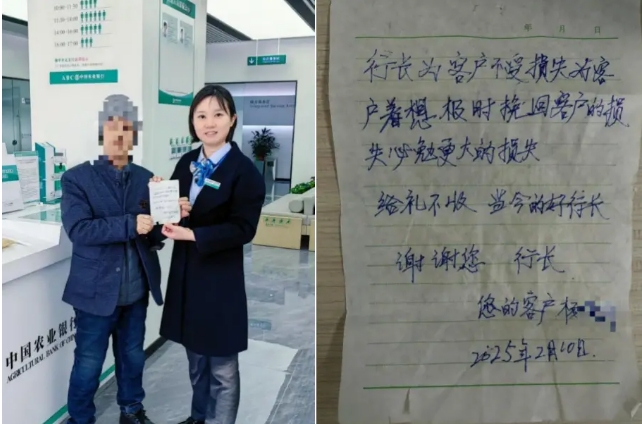 ABC 中国农业银行
中国农业银行
AGRICULTURAL BANK OF CHINA
年 月 日
行长为客户不受损失为客
户着想 极时挽回客户的损
失必勉更大的损失
给礼不收 当今的好行长
谢谢您 行长
您的客户 杨
2025年2月10日.